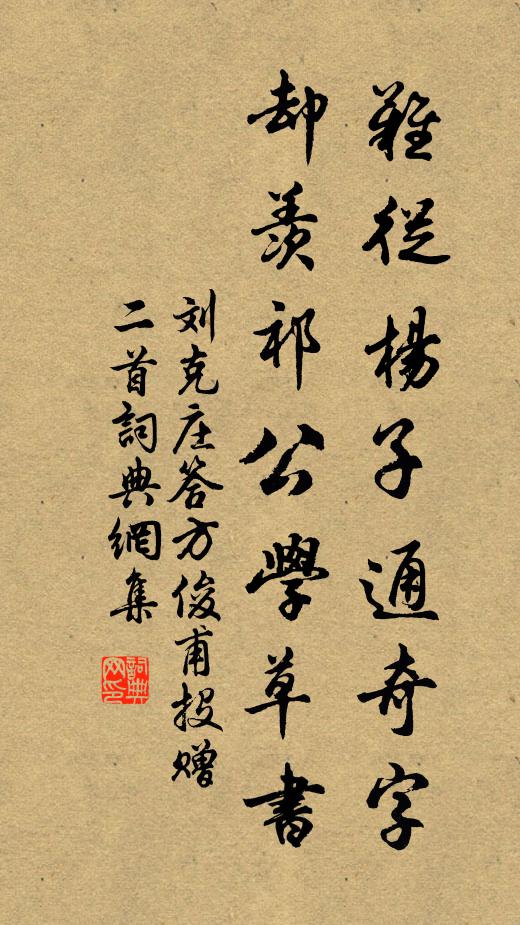 難從楊子通奇字
却羨祁公學草書
刘克庄答方俊甫投赠
二首詞典網集
詞典网印